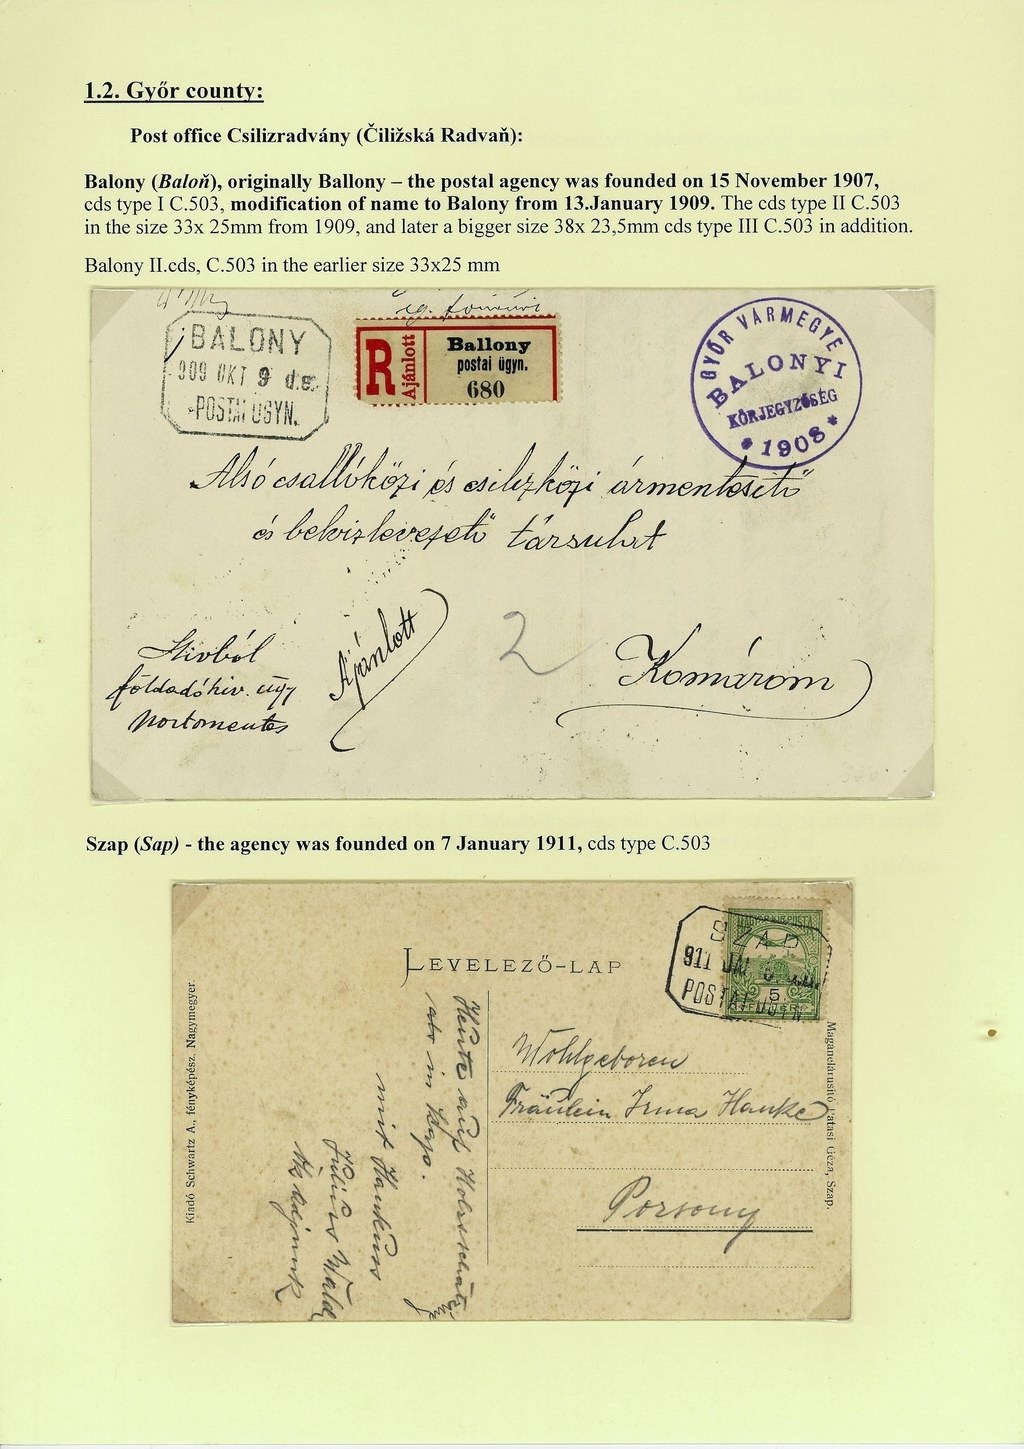 1.2. Győr county:
Post office Csilizradvány (Čiližská Radvaň):
Balony (Baloň), originally Ballony – the postal agency was founded on 15 November 1907,
cds type I C.503, modification of name to Balony from 13.January 1909. The cds type II C.503
in the size 33x 25mm from 1909, and later a bigger size 38x 23,5mm cds type III C.503 in addition.
Balony II.cds, C.503 in the earlier size 33x25 mm
BALONY
909 OKT 9 d.e.
POSTAI ÜGYN.
R
Ajánlott
Ballony
postai ügyn.
680
GYŐR VÁRMEGYE
BALONYI
KÖRJEGYZŐSÉG
* 1908 *
Alsócsallóközi és csilizközi ármentesitő
és belvizlevezető társulat
Hivból
Ajánlott
2
Komárom
Szap (Sap) - the agency was founded on 7 January 1911, cds type C.503
SZAP
911 JAN
POSTAI ÜGYN.
MAGYAR KIR. POSTA
5
LEVELEZŐ-LAP
Kiadó Schwartz A., fényképész. Nagymegyer.
Heute auf
in
mit
Julius Wald
Wohlgeboren
Fräulein Irma Hanke
Pozsony
Magánelárusitó Patasi Géza, Szap.